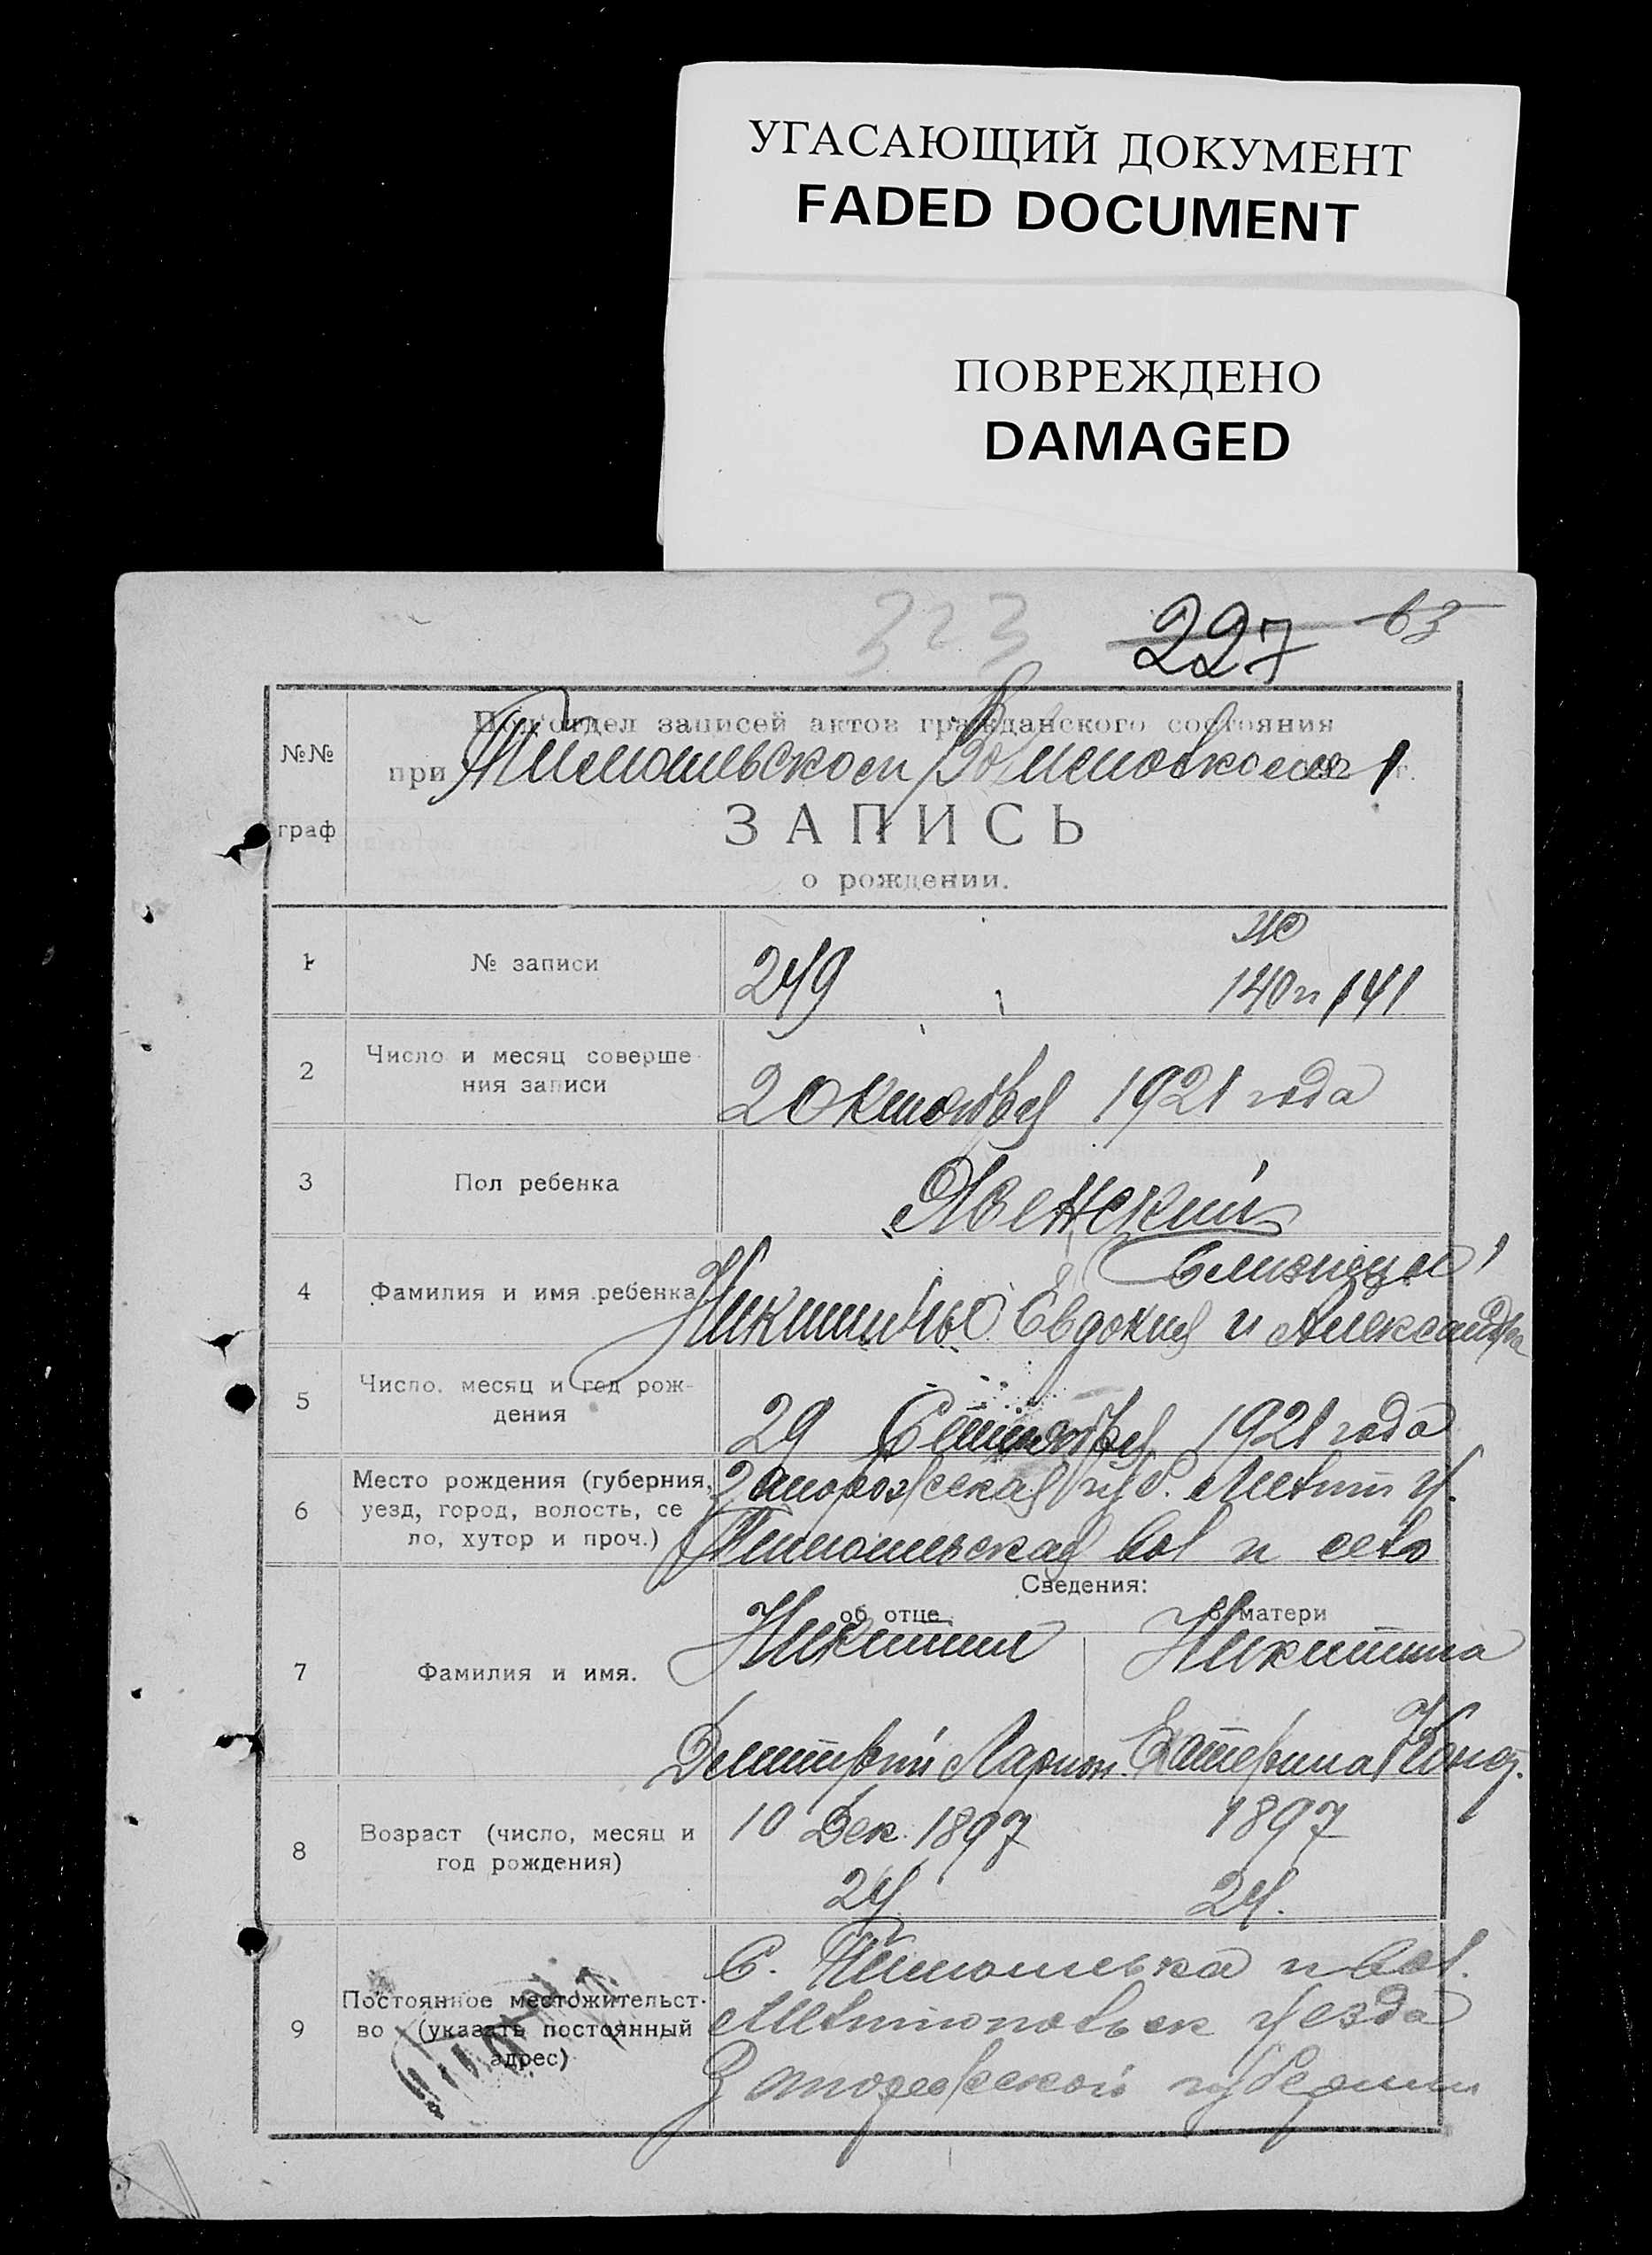 УГАСАЮЩИЙ ДОКУМЕНТ
FADED DOCUMENT
ПОВРЕЖДЕНО
DAMAGED
323 227 63
Подотдел записей актов гражданского состояния
при Тимошевском Волисполкоме 1921 г.
№№
граф
ЗАПИСЬ
о рождении.
1 № записи 249
140 и 141
2 Число и месяц соверше-
ния записи
2 Октября 1921 года
3 Пол ребенка Женский
близнецы
4 Фамилия и имя ребенка Никитины Евдокия и Александра
5 Число, месяц и год рож-
дения
29 Сентября 1921 года
6 Место рождения (губерния,
уезд, город, волость, се
ло, хутор и проч.)
Запорожская губ. Мелит у.
Тимошевская вол и село
Сведения:
об отце о матери
7 Фамилия и имя.
Никитин Никитина
Димитрий Ларион. Екатерина Конд.
8 Возраст (число, месяц и
год рождения)
10 Дек. 1897 1897
24 24.
9 Постоянное местожительст-
во (указать постоянный
адрес)
С. Тимошевка и вол.
Мелитопольск уезда
Запорожской губернии